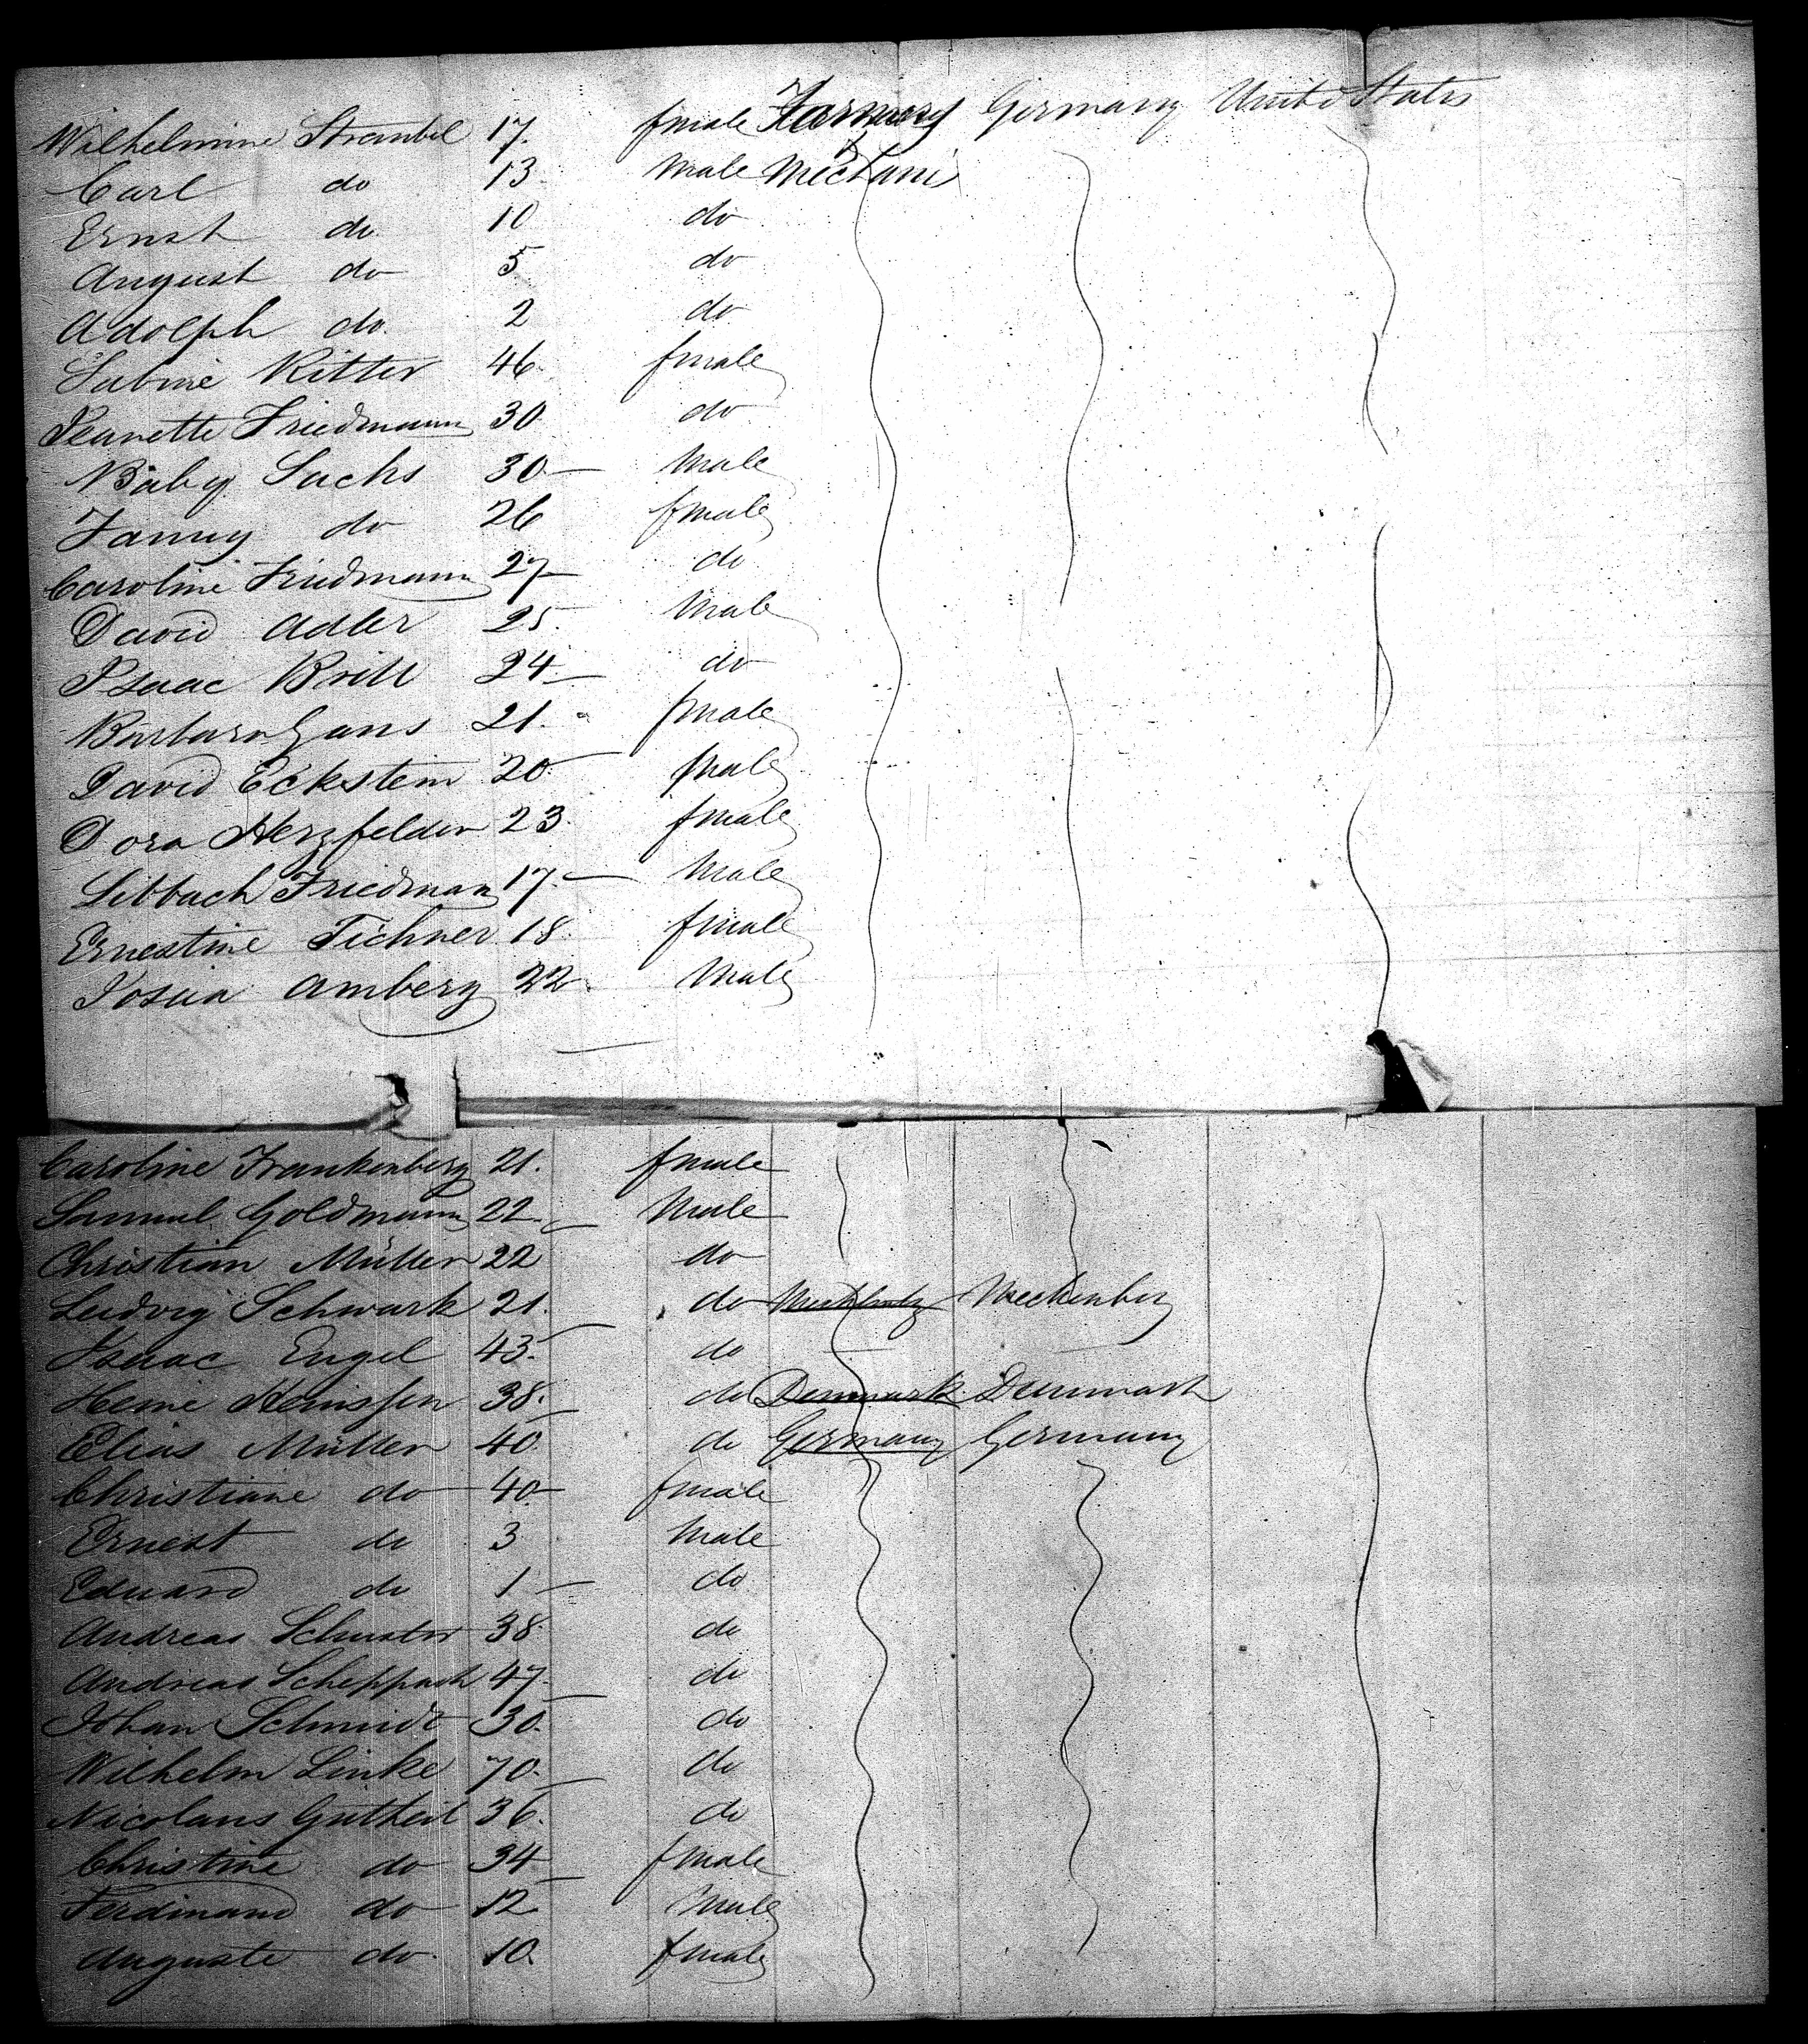 Wilhelmine Strambel 17. fmale Germany United States
Carl do 13. Male Mechani
Ernst do 10 do
August do 5 do
Adolph do. 2 do
Sabine Ritter 46. fmale
Jeanette Friedmann 30 do
Baby Sachs 30 Male
Fanny do 26 fmale
Caroline Friedmann 27 do
David Adler 25. Male
Isaac Brill 24 do
Barbara Gans 21. fmale
David Eckstein 20 Male
Dora Herzfelder 23. fmale
Friedman 17. Male
Ernestine Tichner 18. fmale
Josua Amberg 22 Male
Caroline Frankenberg 21. fmale
Samuel Goldmann 22. Male
Christian Müller 22 do
Ludvig Schwark 21. do Meckenberg
Isaac Engel 43. do
Heine Heinssen 38. do Denmark Denmark
Elias Müller 40. do Germany Germany
Christiane do 40 fmale
Ernest do 3 Male
Eduard do 1 do
Andreas Schuster 38 do
Andreas Scheppach 47 do
Johan Schmidt 30. do
Wilhelm Linke 70. do
Nicolaus Gutheil 36. do
Christine do 34 fmale
Ferdinand do 12 Male
Auguste do 10. fmale